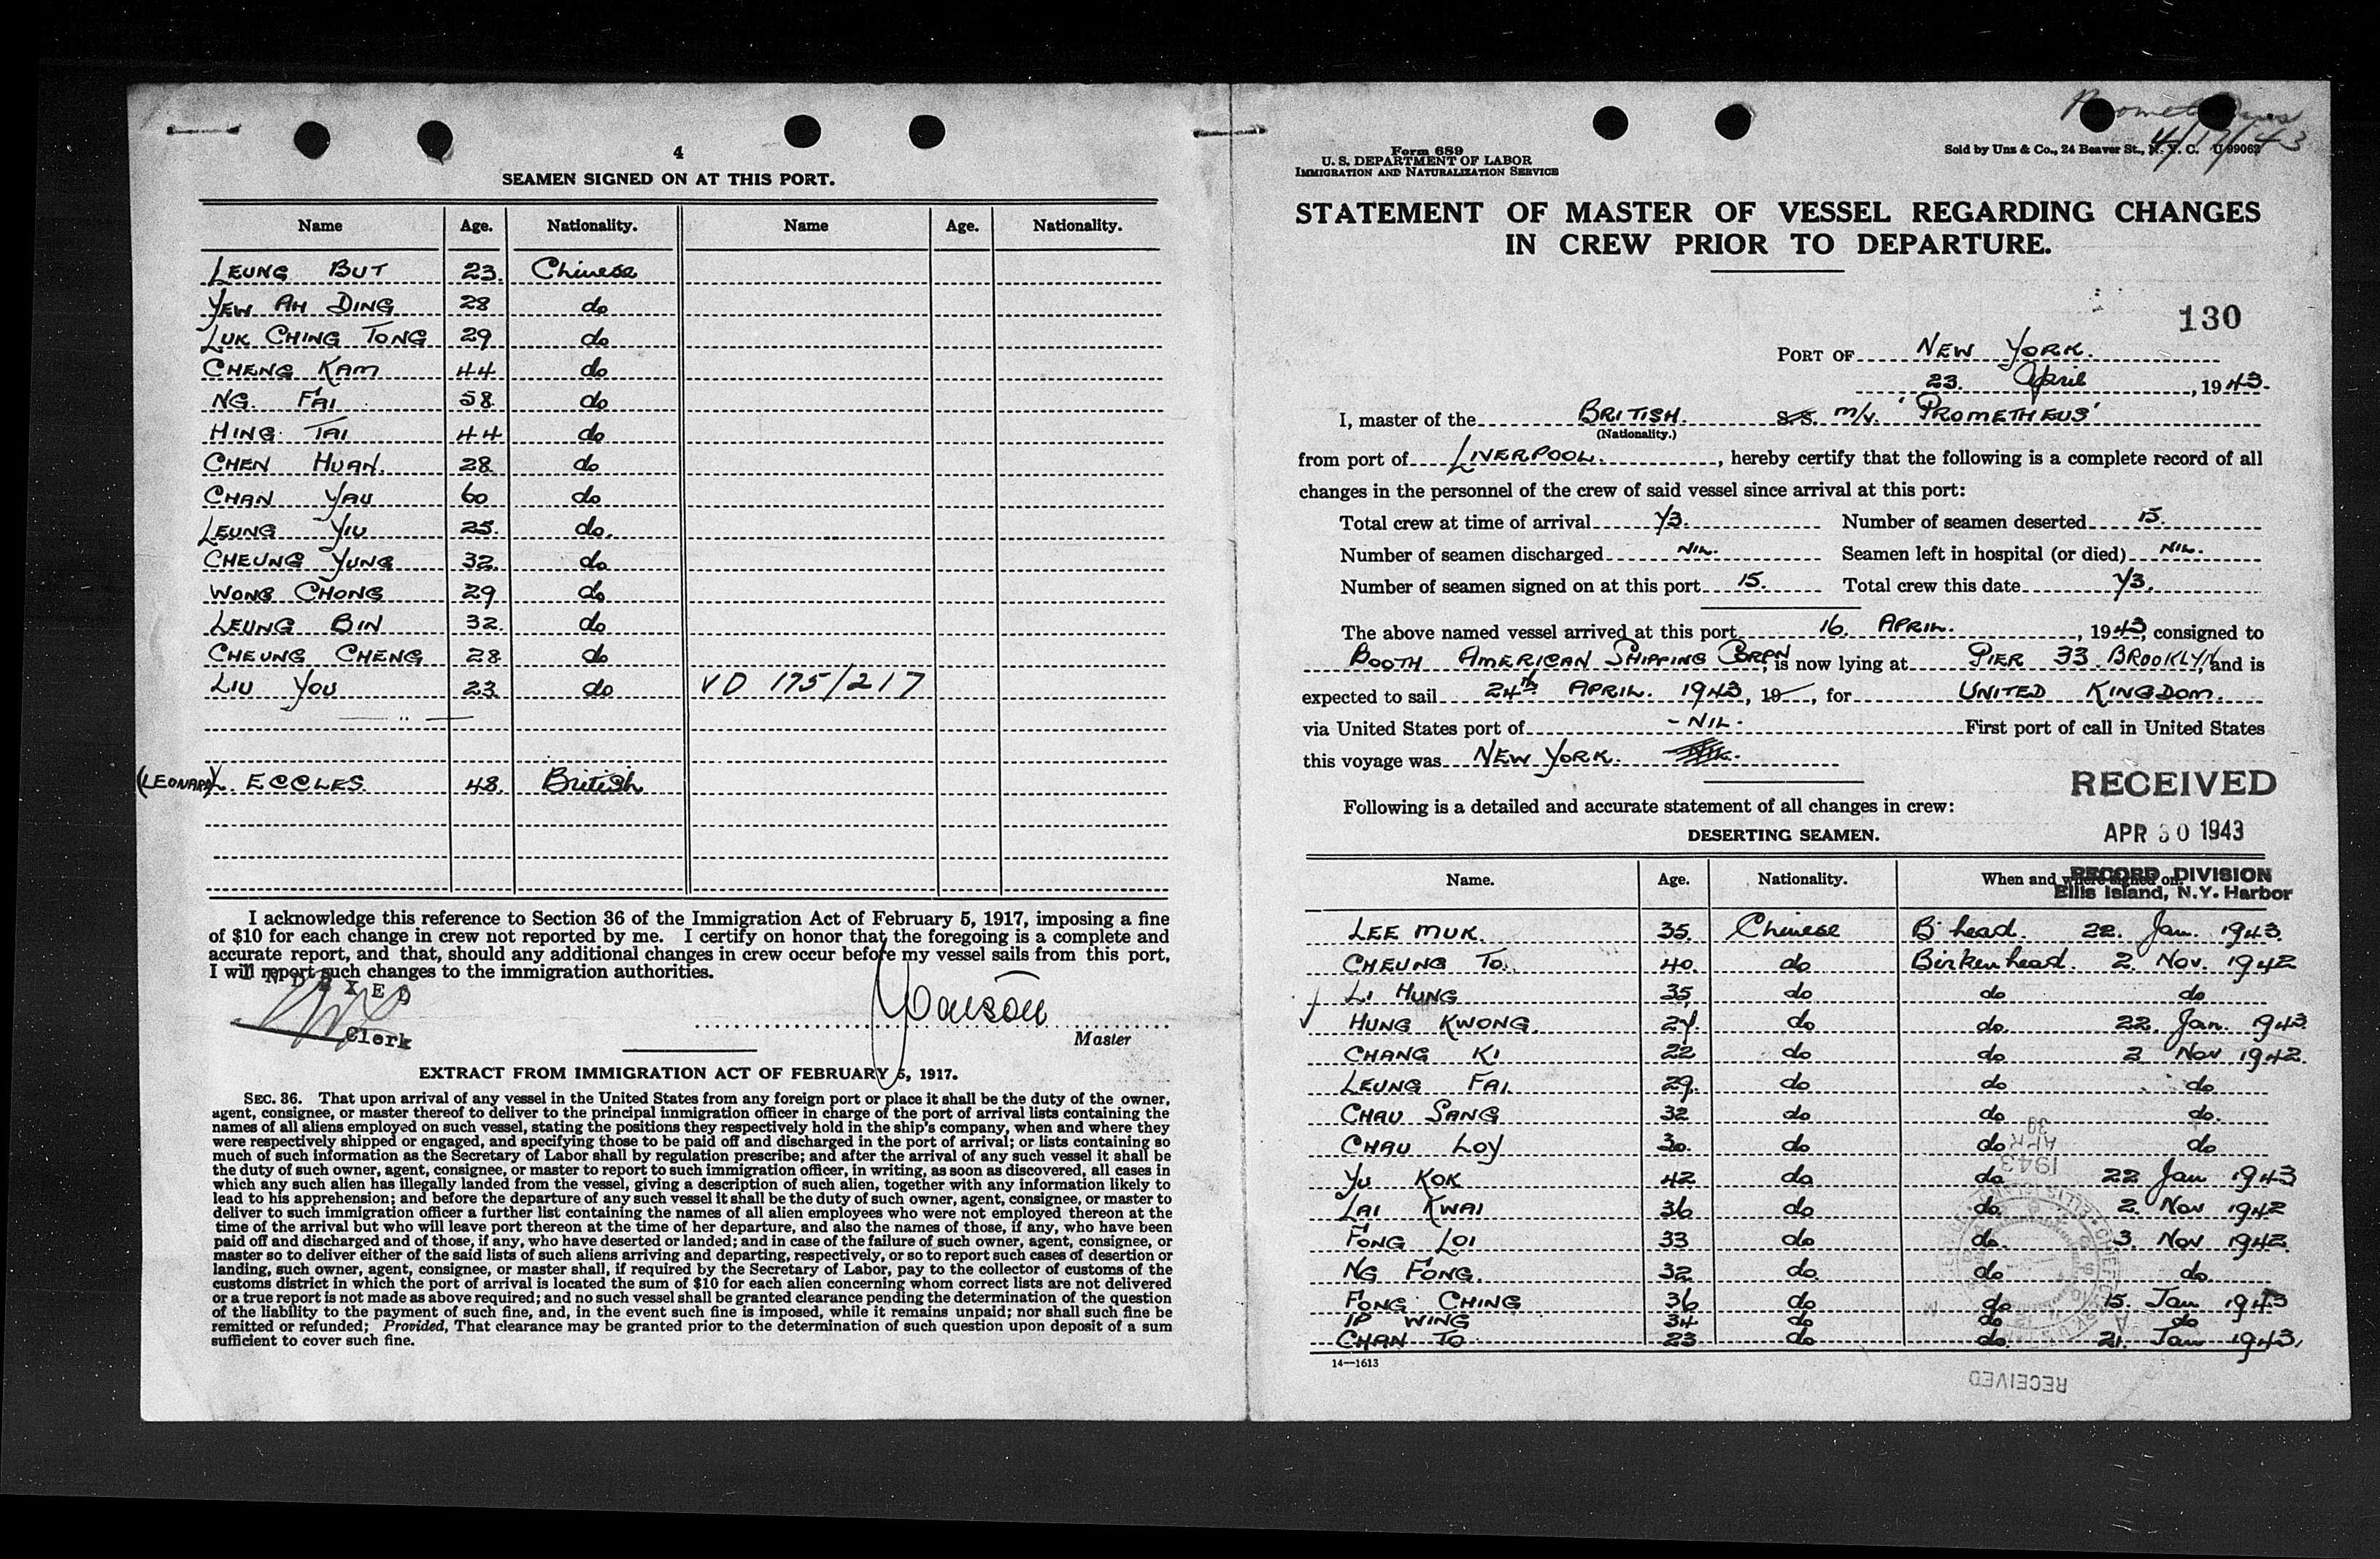 4
SEAMEN SIGNED ON AT THIS PORT.
Name Age. Nationality. Name Age. Nationality.
LEUNG BUT 23. Chinese
YEW AH DING 28 do
LUK CHING TONG 29 do
CHENG KAM 44 do
NG. FAI 58 do
HING TAI 44 do
CHEN HUAN. 28 do
CHAN YAU 60 do
LEUNG YIU 25. do.
CHEUNG YUNG 32. do
WONG CHONG 29 do
LEUNG BIN 32. do
CHEUNG CHENG 28 do
LIU YOU 23 do VD 175/217
(LEONARD) L. ECCLES. 48. British
I acknowledge this reference to Section 36 of the Immigration Act of February 5, 1917, imposing a fine
of $10 for each change in crew not reported by me. I certify on honor that the foregoing is a complete and
accurate report, and that, should any additional changes in crew occur before my vessel sails from this port,
I will report such changes to the immigration authorities.
INDEXED
Clerk
Master
EXTRACT FROM IMMIGRATION ACT OF FEBRUARY 5, 1917.
SEC. 36. That upon arrival of any vessel in the United States from any foreign port or place it shall be the duty of the owner,
agent, consignee, or master thereof to deliver to the principal immigration officer in charge of the port of arrival lists containing the
names of all aliens employed on such vessel, stating the positions they respectively hold in the ship's company, when and where they
were respectively shipped or engaged, and specifying those to be paid off and discharged in the port of arrival; or lists containing so
much of such information as the Secretary of Labor shall by regulation prescribe; and after the arrival of any such vessel it shall be
the duty of such owner, agent, consignee, or master to report to such immigration officer, in writing, as soon as discovered, all cases in
which any such alien has illegally landed from the vessel, giving a description of such alien, together with any information likely to
lead to his apprehension; and before the departure of any such vessel it shall be the duty of such owner, agent, consignee, or master to
deliver to such immigration officer a further list containing the names of all alien employees who were not employed thereon at the
time of the arrival but who will leave port thereon at the time of her departure, and also the names of those, if any, who have been
paid off and discharged and of those, if any, who have deserted or landed; and in case of the failure of such owner, agent, consignee, or
master so to deliver either of the said lists of such aliens arriving and departing, respectively, or so to report such cases of desertion or
landing, such owner, agent, consignee, or master shall, if required by the Secretary of Labor, pay to the collector of customs of the
customs district in which the port of arrival is located the sum of $10 for each alien concerning whom correct lists are not delivered
or a true report is not made as above required; and no such vessel shall be granted clearance pending the determination of the question
of the liability to the payment of such fine, and, in the event such fine is imposed, while it remains unpaid; nor shall such fine be
remitted or refunded; Provided, That clearance may be granted prior to the determination of such question upon deposit of a sum
sufficient to cover such fine.
Prometheus
4/17/43
Form 689
U. S. DEPARTMENT OF LABOR
IMMIGRATION AND NATURALIZATION SERVICE
Sold by Unz & Co., 24 Beaver St., N. Y. C. U 99062
STATEMENT OF MASTER OF VESSEL REGARDING CHANGES
IN CREW PRIOR TO DEPARTURE.
130
PORT OF NEW YORK.
23. April, 1943.
I, master of the BRITISH. S.S. M/V. 'PROMETHEUS'
(Nationality.)
from port of LIVERPOOL., hereby certify that the following is a complete record of all
changes in the personnel of the crew of said vessel since arrival at this port:
Total crew at time of arrival 73. Number of seamen deserted 15.
Number of seamen discharged NIL. Seamen left in hospital (or died) NIL.
Number of seamen signed on at this port 15. Total crew this date 73.
The above named vessel arrived at this port 16. APRIL., 1943, consigned to
BOOTH AMERICAN SHIPPING CORPN, is now lying at PIER 33. BROOKLYN and is
expected to sail 24th APRIL. 1943, 19—, for UNITED KINGDOM.
via United States port of - NIL. First port of call in United States
this voyage was NEW YORK.
RECEIVED
Following is a detailed and accurate statement of all changes in crew:
APR 30 1943
DESERTING SEAMEN.
RECORD DIVISION
Ellis Island, N.Y. Harbor
Name. Age. Nationality. When and where signed on.
LEE MUK. 35. Chinese B'head. 22. Jan. 1943.
CHEUNG TO. 40. do Birkenhead. 2. Nov. 1942
LI HUNG 35 do do do
HUNG KWONG. 27. do do. 22. Jan. 1943.
CHANG KI 22 do do 2 Nov 1942.
LEUNG FAI. 29. do do do
CHAU SANG 32 do do do.
CHAU LOY 30. do do do
YU KOK 42 do do 22 Jan 1943
LAI KWAI 36 do do. 2. Nov 1942
FONG LOI 33 do do. 3. Nov 1942.
NG FONG. 32 do do do
FONG CHING 36 do do 15. Jan 1943
IP WING 34 do do do
CHAN TO 23 do do. 21. Jan 1943.
14—1613
APR 30 1943
RECEIVED